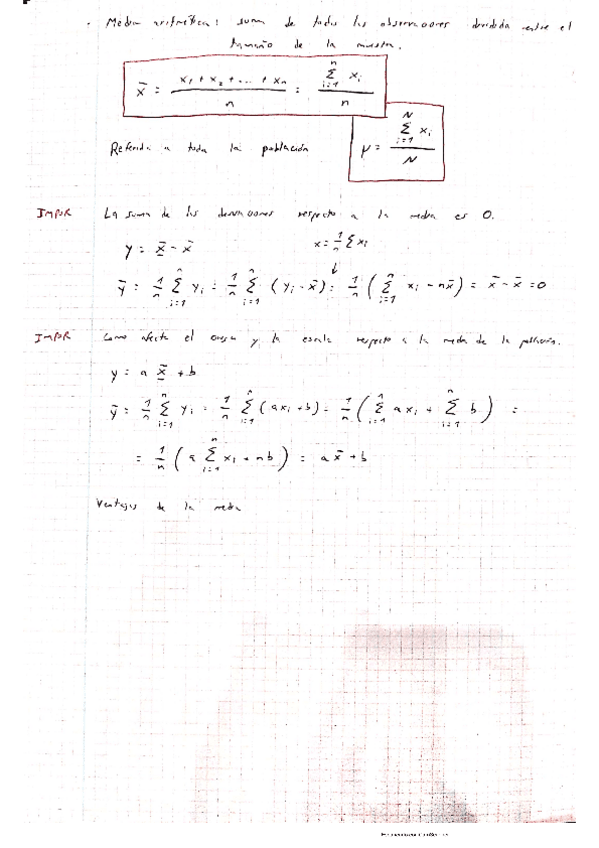 · Media aritmética: suma de todas las observaciones dividida entre el
tamaño de la muestra.
x̄ = (x₁ + x₂ + ... + xₙ) / n = (∑ᵢ₌₁ⁿ xᵢ) / n
Referida a toda la población
μ = (∑ᵢ₌₁ᴺ xᵢ) / N
IMPOR La suma de las desviaciones respecto a la media es 0.
y = x - x̄ x = 1/n ∑ xᵢ
↓
ȳ = 1/n ∑ᵢ₌₁ⁿ yᵢ = 1/n ∑ᵢ₌₁ⁿ (yᵢ - x̄) = 1/n (∑ᵢ₌₁ⁿ xᵢ - nx̄) = x̄ - x̄ = 0
IMPOR Como afecta el origen y la escala respecto a la media de la población.
y = a x + b
ȳ = 1/n ∑ᵢ₌₁ⁿ yᵢ = 1/n ∑ᵢ₌₁ⁿ (axᵢ + b) = 1/n (∑ᵢ₌₁ⁿ axᵢ + ∑ᵢ₌₁ⁿ b) =
= 1/n (a ∑ᵢ₌₁ⁿ xᵢ + nb) = a x̄ + b
Ventajas de la media